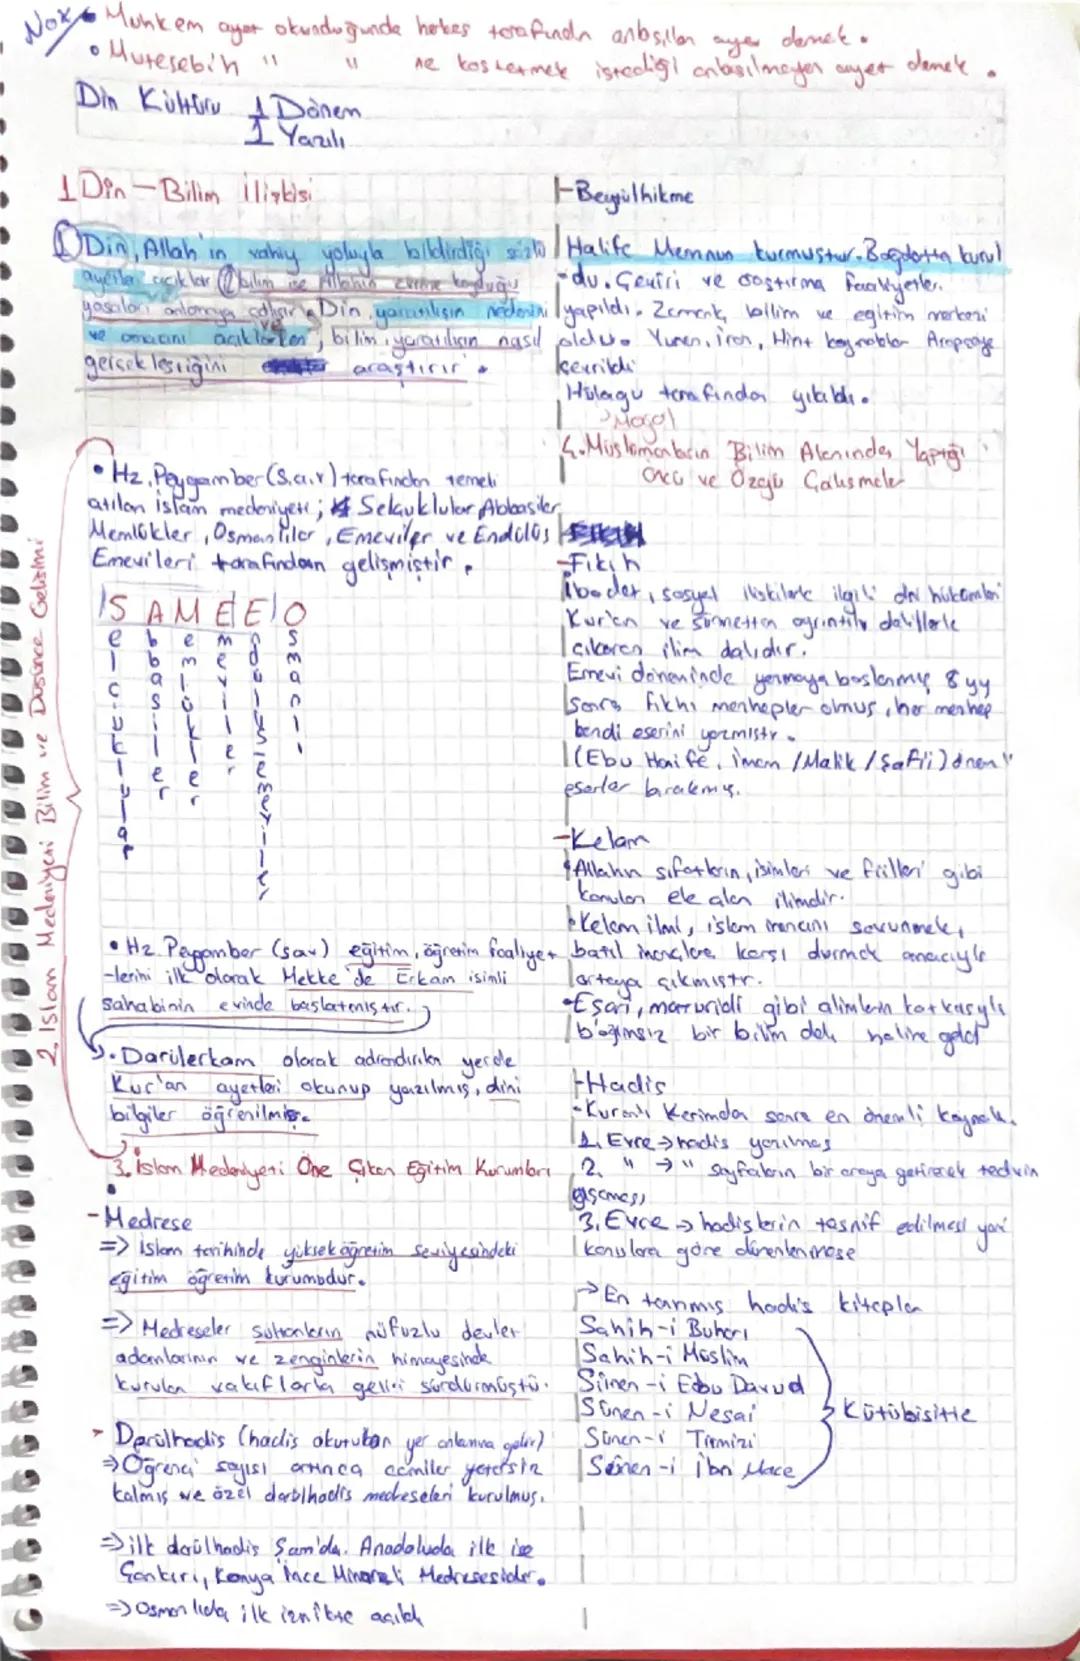 Not
• Muhkem ayet okunduğunda herkes tarafından anlaşılan ayet demek.
• Müteşebih " " ne kastetmek istediği anlaşılmayan ayet demek.
Din Kültürü 1 Dönem
1 Yazılı
1 Din - Bilim İlişkisi
① Din, Allah'ın vahiy yoluyla bildirdiği sözlü
ayetleri açıklar ② bilim ise Allahın evrene koyduğu
yasaları anlamaya çalışır. Din, yaratılışın nedenini
ve amacını açıklarken, bilim, yaratılışın nasıl
gerçekleştiğini araştırır.
2. İslam Medeniyeti Bilim ve Düşünce Gelişimi
• Hz. Peygamber (s.a.v) tarafından temeli
atılan islam medeniyeti; Selçuklular, Abbasiler,
Memlükler, Osmanlılar, Emeviler ve Endülüs
Emevileri tarafından gelişmiştir.
S A M E E O
Selçuklular
Abbasiler
Memlükler
Emeviler
Endülüs Emeviler
Osmanlı
• Hz. Peygamber (sav) eğitim, öğretim faaliyet
-lerini ilk olarak Mekke'de Erkam isimli
sahabinin evinde başlatmıştır.
• Darülerkam olarak adlandırılan yerde
Kur'an ayetleri okunup yazılmış, dini
bilgiler öğrenilmiş.
3. İslam Medeniyeti Öne Çıkan Eğitim Kurumları
- Medrese
=> İslam tarihinde yüksek öğretim seviyesindeki
eğitim öğretim kurumudur.
=> Medreseler sultanların nüfuzlu devlet
adamlarının ve zenginlerin himayesinde
kurulan vakıflarla geliri sürdürmüştü.
- Darülhadis (hadis okutulan yer anlamına gelir)
=> Öğrenci sayısı artınca camiler yetersiz
kalmış ve özel darülhadis medreseleri kurulmuş.
=> ilk darülhadis Şam'da. Anadoluda ilk ise
Çankırı, Konya İnce Minareli Medresesidir.
=> Osmanlıda ilk iznikte açıldı
- Beytülhikme
Halife Memnun kurmuştur. Bağdatta kurul
-du. Çeviri ve araştırma faaliyetleri
yapıldı. Zamanla, bilim ve eğitim merkezi
oldu. Yunan, iran, Hint kaynakları Arapçaya
çevrildi
Hülagu tarafından yıkıldı.
Moğol
4. Müslümanların Bilim Alanında Yaptığı
Öncü ve Özgü Çalışmalar
- Fıkıh
İbadet, sosyal ilişkilerle ilgili dini hükümleri
Kur'an ve sünnetten ayrıntılı delillerle
çıkaran ilim dalıdır.
Emevi döneminde yazmaya başlanmış 8 yy
sonra fıkhi mezhepler olmuş, her mezhep
kendi eserini yazmıştır.
(Ebu Hanife, imam / Malik / Şafi'i) önemli
eserler bırakmış.
- Kelam
• Allahın sıfatların, isimleri ve fiilleri gibi
konuları ele alan ilimdir.
• Kelam ilmi, islam inancını savunmak,
batıl inançlara karşı durmak amacıyla
ortaya çıkmıştır.
• Eşari, maturidi gibi alimlerin katkısıyla
bağımsız bir bilim dalı haline geldi
- Hadis
- Kuran'ı Kerimdan sonra en önemli kaynak.
1. Evre → hadis yazılması
2. " → " sayfaların bir araya getirerek tedvin
aşaması
3. Evre → hadislerin tasnif edilmesi yani
konulara göre düzenlenmesi
→ En tanmış hadis kitapları
Sahih-i Buhari
Sahih-i Müslim
Sünen-i Ebu Davud
Sünen-i Nesai
Sünen-i Tirmizi
Sünen-i İbn Mace
Kütübisitte